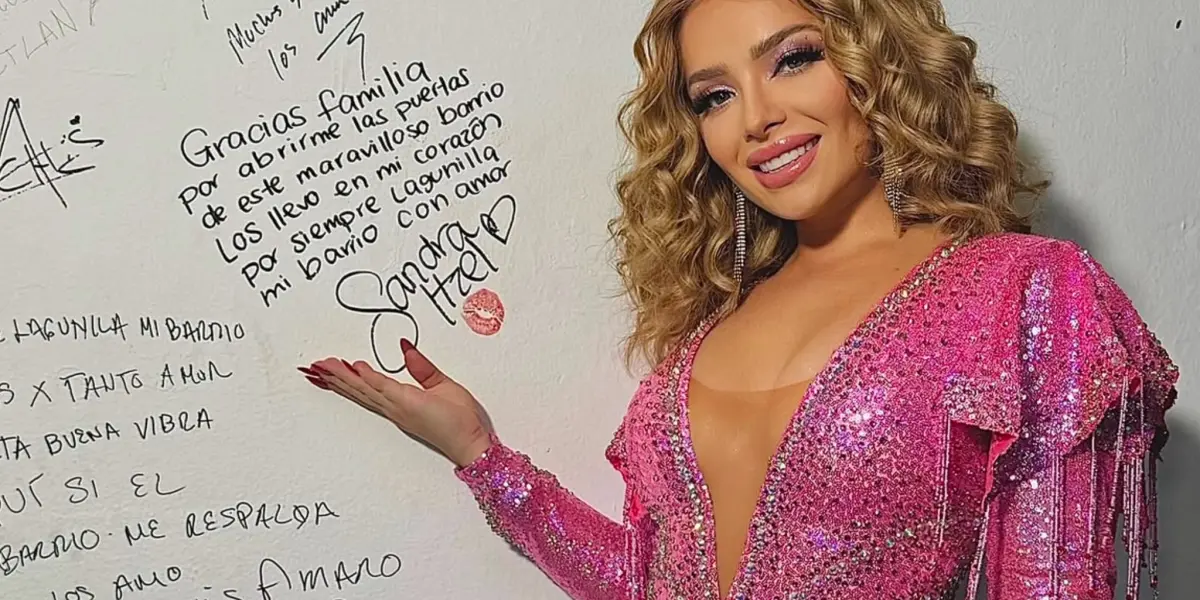 Muchos
los
Gracias familia
por abrirme las puertas
de este maravilloso barrio
Los llevo en mi corazón
por siempre Lagunilla
mi barrio con amor
Sandra
Itzel
LAGUNILLA MI BARRIO
S X TANTO AMOR
TA BUENA VIBRA
SI EL
BARRIO ME RESPALDA
LOS AMO
AMARO